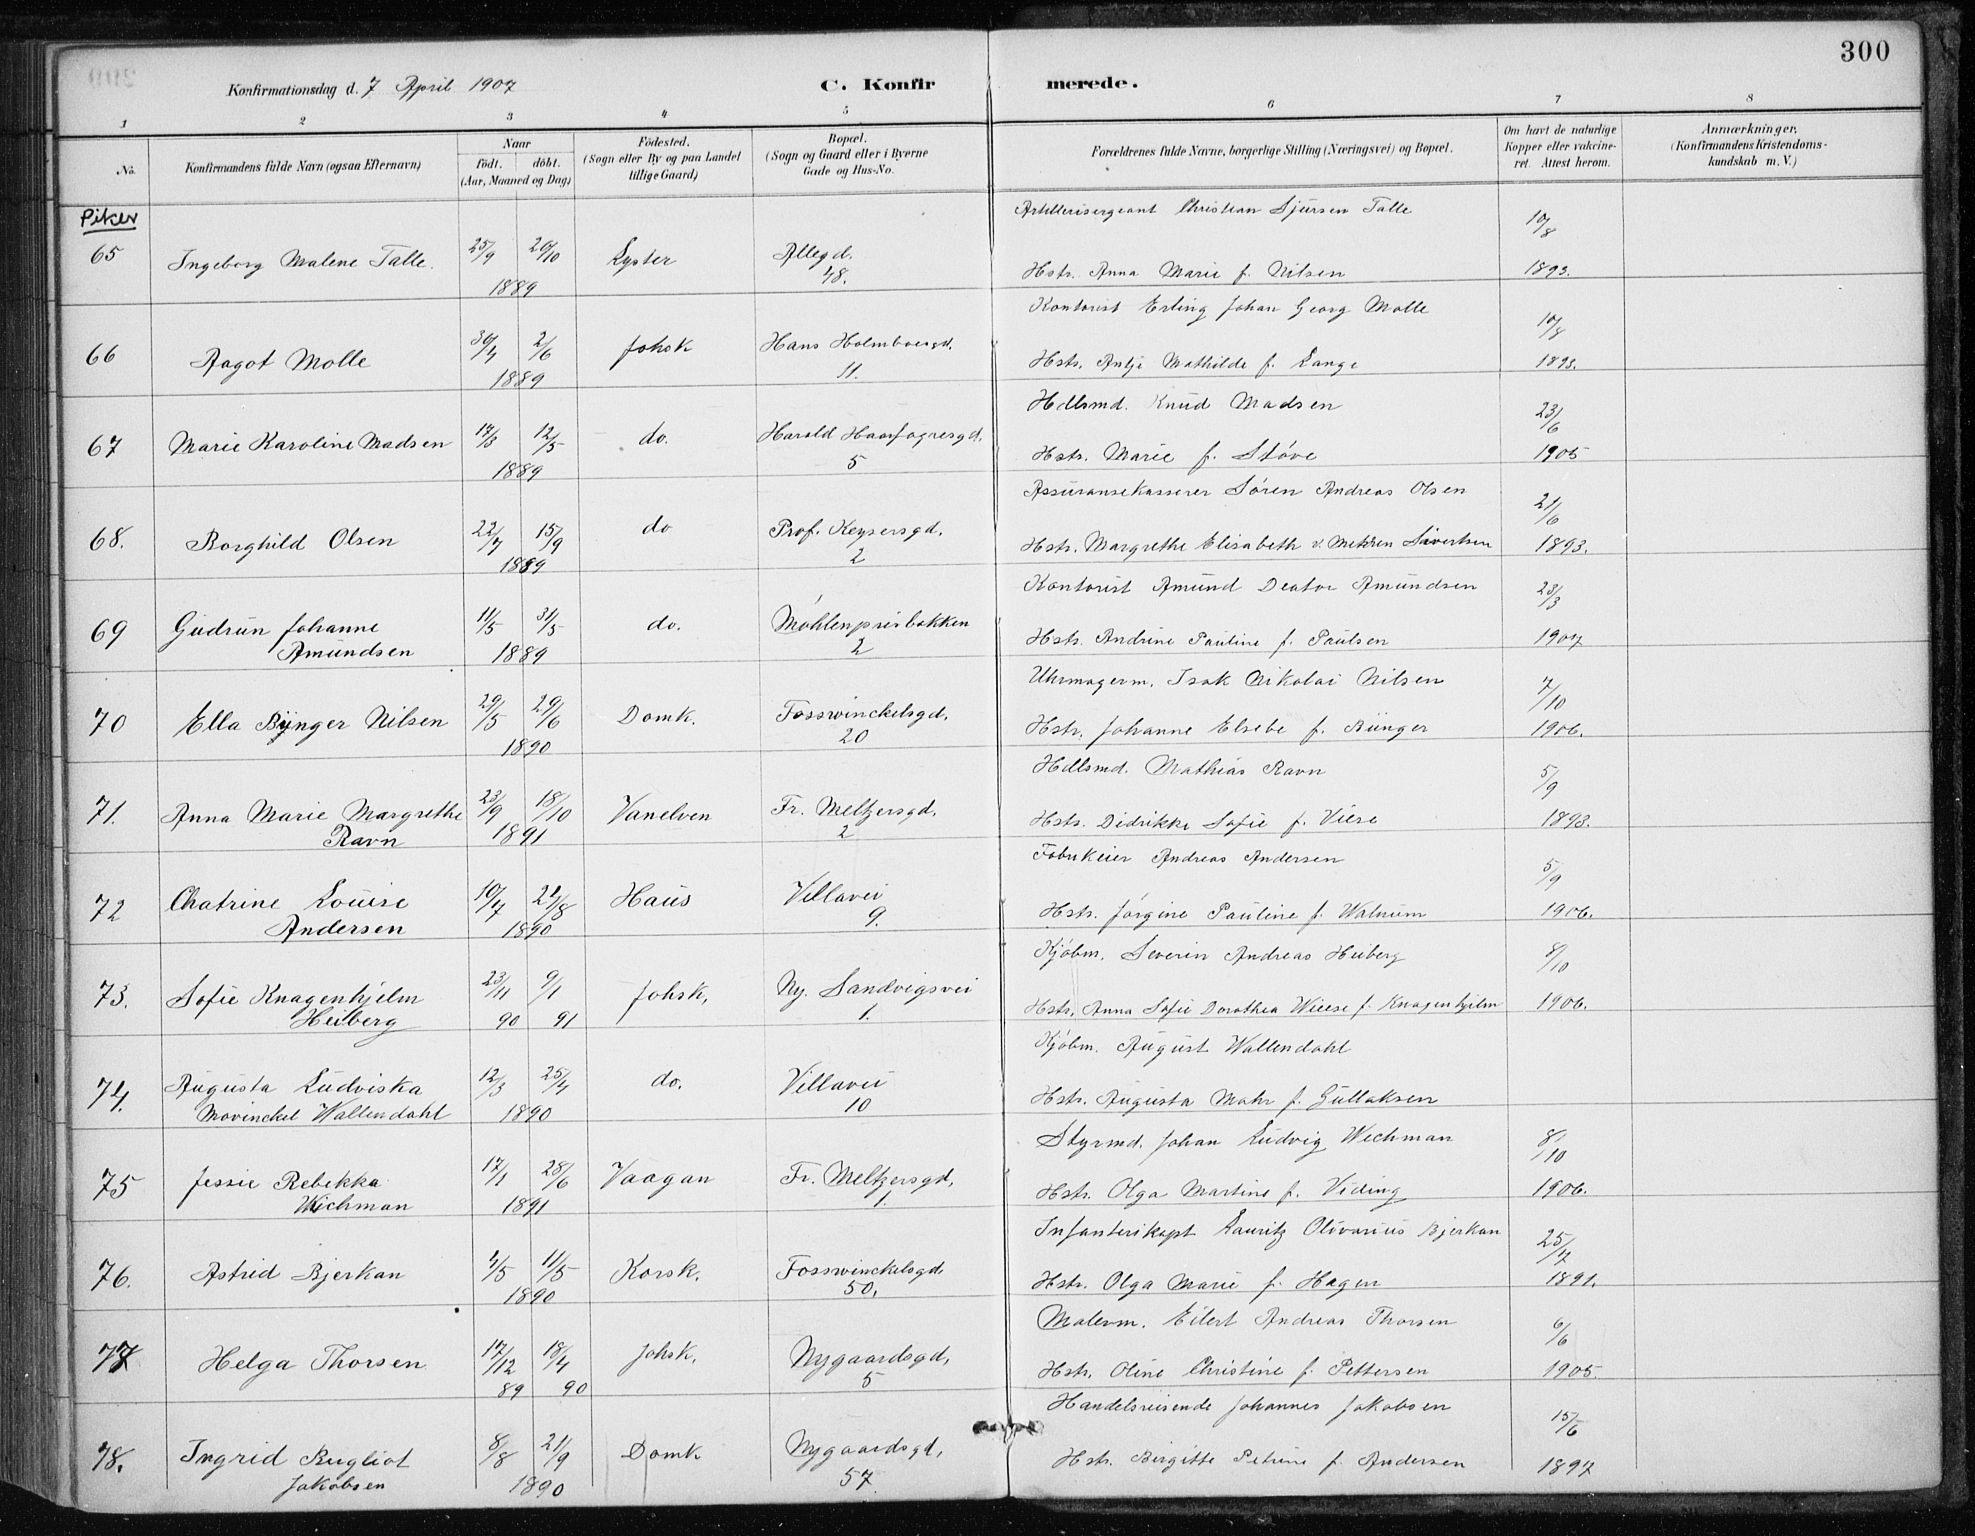 300
Konfirmationsdag d. 7 April 1907
C. Konfir merede.
1 2 3 4 5 6 7 8
No. Konfirmandens fulde Navn (ogsaa Efternavn) Naar født. døbt. (Aar, Maaned og Dag) Fødested. (Sogn eller By og paa Landet tillige Gaard) Bopæl. (Sogn og Gaard eller i Byerne Gade og Hus-No. Forældrenes fulde Navne, borgerlige Stilling (Næringsvei) og Bopæl. Om havt de naturlige Kopper eller vakcineret. Attest herom. Anmærkninger. (Konfirmandens Kristendomskundskab m. V.)
Piker
Artillerisergeant Christian Sjursen Talle 10/8
65 Ingeborg Malene Talle. 25/9 20/10 Lyster Allegd.
1889 48. Hstr. Anna Marie f. Nilsen 1893.
Kontorist Erling Johan Georg Molle 10/8
66 Aagot Molle 30/4 2/6 Johsk Hans Holmboesgd.
1889 11. Hstr. Antje Mathilde f. Lange 1893.
Hdlsmd. Knud Madsen 23/6
67 Marie Karoline Madsen 17/3 12/5 do. Harald Haarfagresgd.
1889 5 Hstr. Marie f. Støve 1905
Assuransekasserer Søren Andreas Olsen 21/6
68. Borghild Olsen 22/7 15/9 do Prof. Keysersgd.
1889 2 Hstr. Margrethe Elisabeth v. Mehren Sivertsen 1893.
Kontorist Amund Amundsen 23/3
69 Gudrun Johanne 11/5 31/5 do. Møhlenprisbakken
Amundsen 1889 2 Hstr. Andrine Pauline f. Paulsen 1907
Uhrmagerm. Isak Nikolai Nilsen 7/10
70 Ella Bünger Nilsen 29/5 29/6 Domk. Fosswinckelsgd.
1890 20 Hstr. Johanne Elsebe f. Bünger 1906.
Hdlsmd. Mathias Ravn 5/9
71. Anna Marie Margrethe 23/9 18/10 Vanelven Fr. Meltzersgd.
Ravn 1891 2 Hstr. Didrikke Sofie f. Viese 1893.
Fabrikeier Andreas Andersen 5/9
72 Chatrine Louise 10/7 21/8 Haus Villavei
Andersen 1890 9. Hstr. Jørgine Pauline f. Walnum 1906.
Kjøbm. Severin Andreas Heiberg 8/10
73. Sofie Knagenhjelm 23/11 9/1 Johsk. Ny. Sandvigsvei
Heiberg 90 91 1. Hstr. Anna Sofie Dorothea Wiese f. Knagenhjelm 1906.
Kjøbm. August Wallendahl
74. Augusta Ludviska 12/3 25/4 do. Villavei
Movinckel Wallendahl 1890 10 Hstr. Augusta Mohr f. Gullaksen
Styrmd. Johan Ludvig Wechman 8/10
75 Jessie Rebekka 17/1 28/6 Vaagan Fr. Meltzersgd.
Wichman 1891 1. Hstr. Olga Martine f. Viding 1906.
Infanterikapt Lauritz Olivarius Bjerkan 25/7
76. Astrid Bjerkan 4/5 11/5 Korsk. Fosswinckelsgd.
1890 50. Hstr. Olga Marie f. Hagen 1891.
Malerm. Eilert Andreas Thorsen 6/6
77 Helga Thorsen 17/12 18/4 Johsk. Nygaardsgd.
89 90 5 Hstr. Oline Christine f. Pettersen 1905.
Handelsreisende Johannes Jakobsen 15/6
78. Ingrid Bugliot 8/8 21/9 Domk Nygaardsgd.
Jakobsen 1890 57. Hstr. Birgitte Petrine f. Andersen 1897